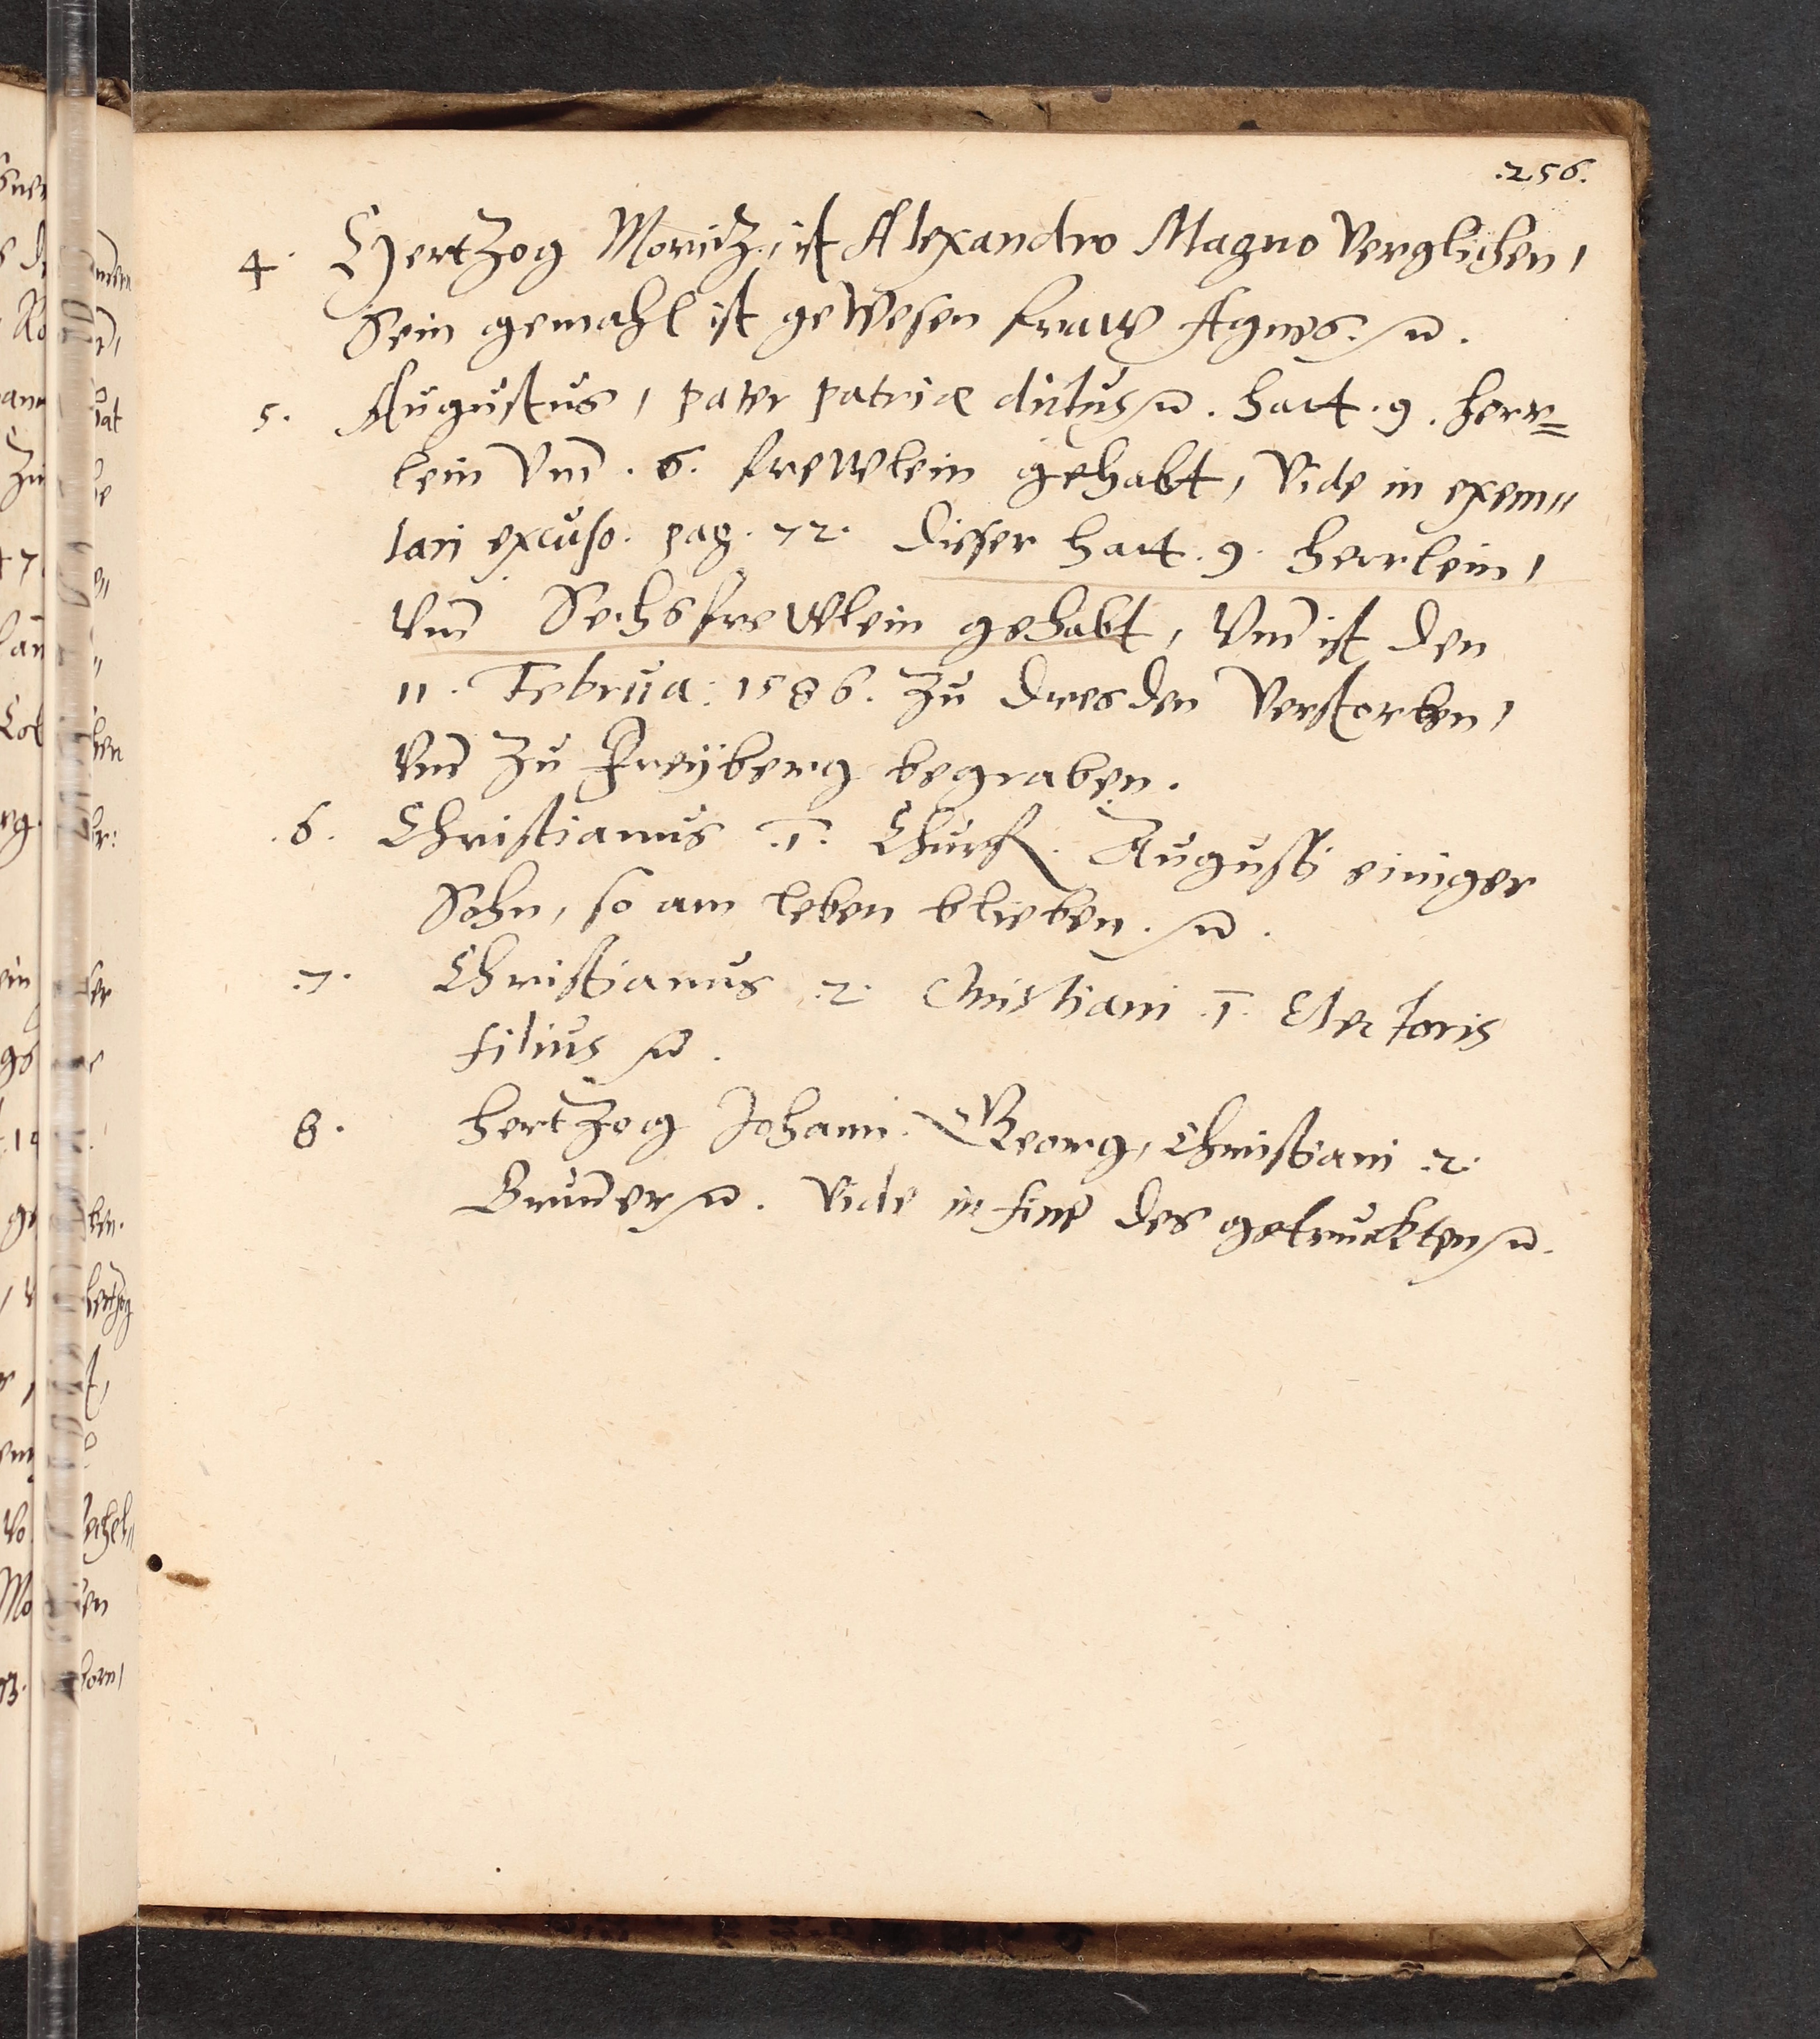 .256.
4. Hertzog Moritz, ist Alexandro Magno verglichen,
Sein gemahl ist gewesen fraw Agnes. ꝛc.
5. Augustus, pater patriæ dictus ꝛc. hatt. 9. herr=
lein vnd. 6. frewlein gehabt, vide in exem=
lari excuso. pag. 72. Dieser hatt. 9. herrlein,
vnd Sechs frewlein gehabt, vnd ist den
11. Februa: 1586. zu Dresden verstorben,
vnd zu Freÿberg begraben.
.6. Christianus .1. Churf. Augusti einiger
Sohn, so am leben blieben. ꝛc.
.7. Christianus .2. Christiani .1. Electoris
filius ꝛc.
8. Hertzog Johann. Georg, Christiani .2.
Bruder ꝛc. vide in fine des getruckten ꝛc.